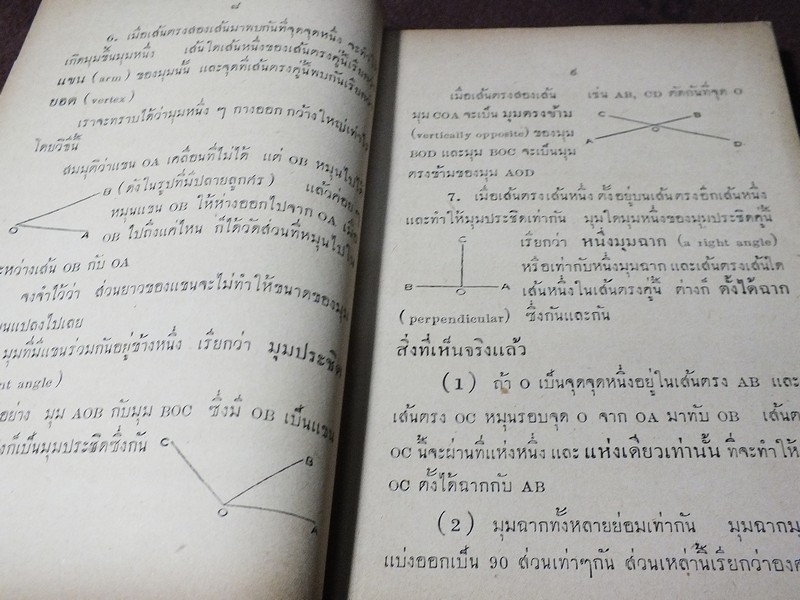 ๘
6. เมื่อเส้นตรงสองเส้นมาพบกันที่จุดจุดหนึ่ง จะทำให้
เกิดมุมขึ้นมุมหนึ่ง เส้นใดเส้นหนึ่งของเส้นตรงคู่นี้เรียกว่า
แขน (arm) ของมุมนั้น และจุดที่เส้นตรงคู่นี้พบกันเรียกว่า
ยอด (vertex)
เราจะทราบได้ว่ามุมหนึ่ง ๆ กางออก กว้างใหญ่เท่าใด
โดยวิธีนี้
สมมุติว่าแขน OA เคลื่อนที่ไม่ได้ แต่ OB หมุนไปได้
B (ดังในรูปที่มีปลายลูกศร) แล้วค่อย
หมุนแขน OB ให้ห่างออกไปจาก OA เมื่อ
O A OB ไปถึงแค่ไหน ก็ได้วัดส่วนที่หมุนไปใน
ระหว่างเส้น OB กับ OA
จงจำไว้ว่า ส่วนยาวของแขนจะไม่ทำให้ขนาดของมุม
เปลี่ยนแปลงไปเลย
มุมที่มีแขนร่วมกันอยู่ข้างหนึ่ง เรียกว่า มุมประชิด
angle)
อย่าง มุม AOB กับมุม BOC ซึ่งมี OB เป็นแขน
ก็เป็นมุมประชิดซึ่งกัน
C
B
O
A
๙
เมื่อเส้นตรงสองเส้น เช่น AB, CD ตัดกันที่จุด O
มุม COA จะเป็น มุมตรงข้าม C B
(vertically opposite) ของมุม O
BOD และมุม BOC จะเป็นมุม A D
ตรงข้ามของมุม AOD
7. เมื่อเส้นตรงเส้นหนึ่ง ตั้งอยู่บนเส้นตรงอีกเส้นหนึ่ง
และทำให้มุมประชิดเท่ากัน มุมใดมุมหนึ่งของมุมประชิดคู่นี้
C เรียกว่า หนึ่งมุมฉาก (a right angle)
หรือเท่ากับหนึ่งมุมฉาก และเส้นตรงเส้นใด
B O A เส้นหนึ่งในเส้นตรงคู่นี้ ต่างก็ ตั้งได้ฉาก
(perpendicular) ซึ่งกันและกัน
สิ่งที่เห็นจริงแล้ว
(1) ถ้า O เป็นจุดจุดหนึ่งอยู่ในเส้นตรง AB และ
เส้นตรง OC หมุนรอบจุด O จาก OA มาทับ OB เส้นต
OC นี้จะผ่านที่แห่งหนึ่ง และ แห่งเดียวเท่านั้น ที่จะทำให้
OC ตั้งได้ฉากกับ AB
(2) มุมฉากทั้งหลายย่อมเท่ากัน มุมฉากมุ
แบ่งออกเป็น 90 ส่วนเท่าๆกัน ส่วนเหล่านี้เรียกว่าองศ